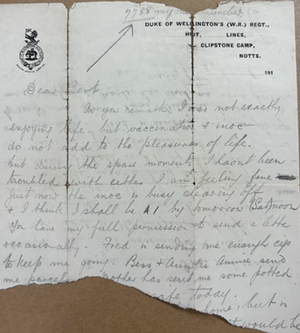 7788 my number
DUKE OF WELLINGTON'S (W.R.) REGT.,
HUT, LINES,
CLIPSTONE CAMP,
NOTTS.
191
Dear Bert
As you remark I was not exactly
enjoying life but vaccination & inoc
do not add to the pleasures of life.
but during the spare moments I havent been
troubled with either I am feeling fine
Just now the inoc is busy clearing off
& I think I shall be A1 by tomorrow (Sat) noon
You have my full permission to send a
occasionally. Fred is sending me enough cigs
to keep me going. Bess & Annie
me parcels. Mother has sent me some potted
today.
home, but
would be